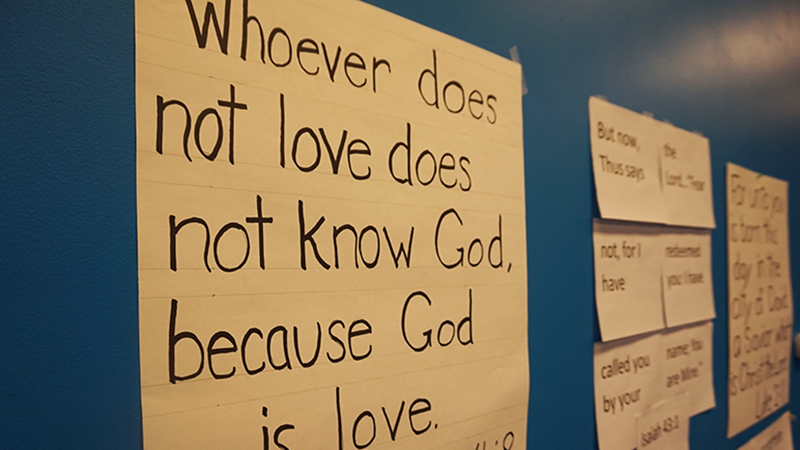 Whoever does
not love does
not know God,
because God
is love.
But now,
Thus says
the
Lord..."Fear
not, for I
have
redeemed
you: I have
called you
by your
name; You
are Mine."
Isaiah 43:1
For unto you
is born this
day in the
city of
a Savior who
is Christ the Lord
Luke 2:11